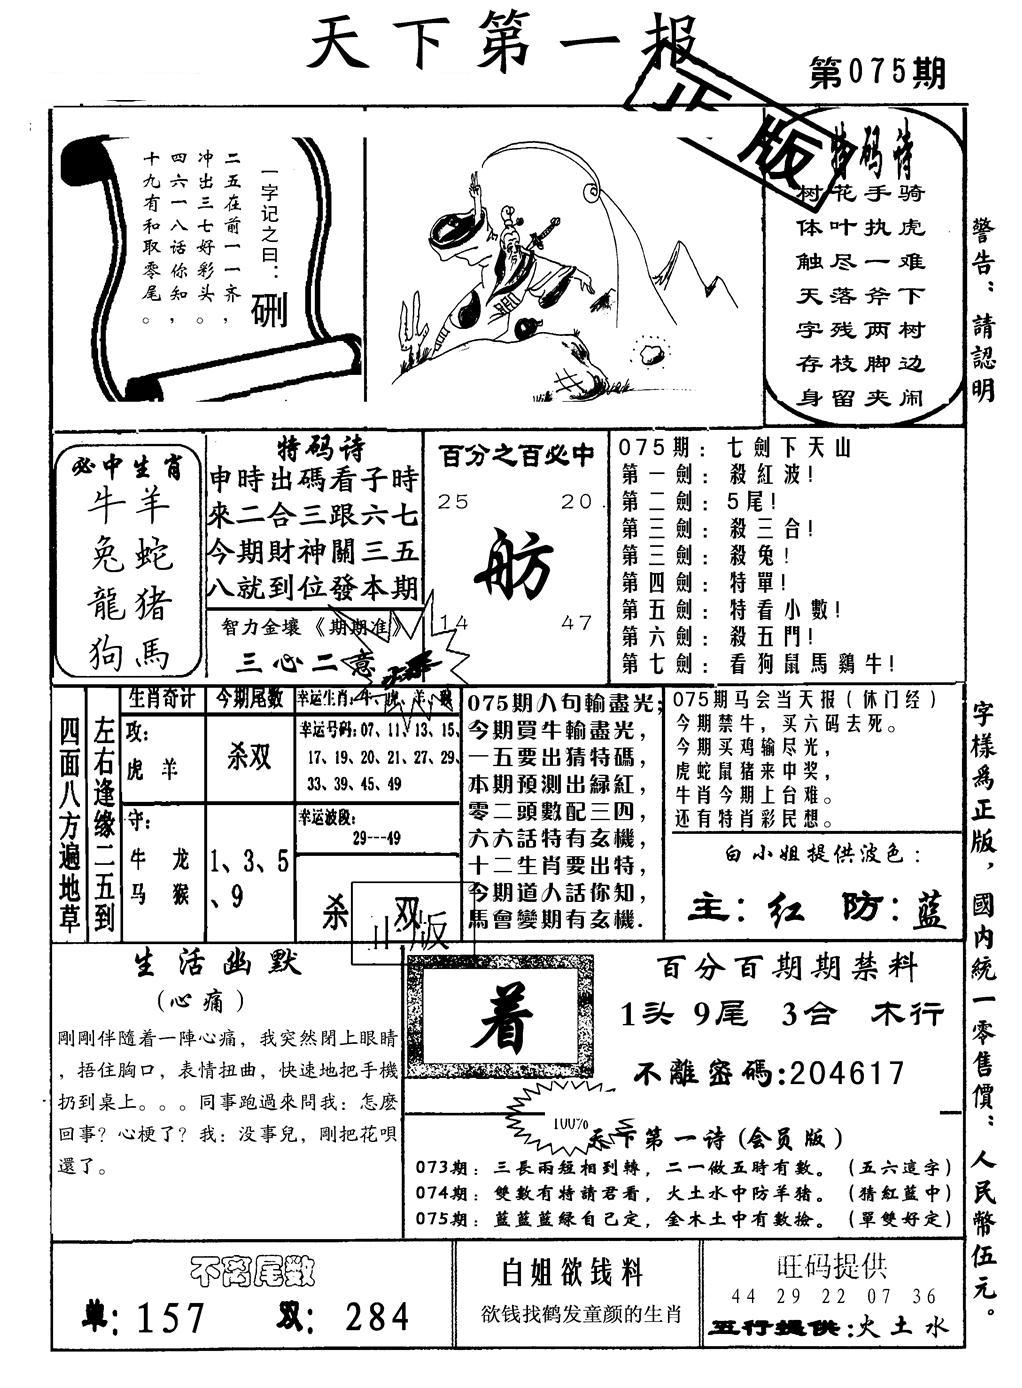 天下第一报
第075期
正版
一字记之曰：
硎
二五在前一一齐，
冲出三七好彩头。
四六一八话你知，
十九有和取零尾。
特码诗
骑虎难下树边闹
手执一斧两脚夹
花叶尽落残枝留
树体触天字存身
警告：請認明
字樣為正版，國内統一零售價：人民幣伍元。
必中生肖
牛羊
兔蛇
龍猪
狗馬
特码诗
申時出碼看子時
來二合三跟六七
今期財神關三五
八就到位發本期
智力金壤《期期准》
三心二意
百分之百必中
25 20
舫
14 47
075期：七劍下天山
第一劍：殺紅波!
第二劍：5尾!
第三劍：殺三合!
第三劍：殺兔!
第四劍：特單!
第五劍：特看小數!
第六劍：殺五門!
第七劍：看狗鼠馬鷄牛!
四面八方遍地草
左右逢缘二五到
生肖奇计
攻:
虎 羊
守:
牛 龙
马 猴
今期尾数
杀双
1、3、5
、9
幸运生肖: 牛、虎、羊、猴
幸运号码: 07、11、13、15、
17、19、20、21、27、29、
33、39、45、49
幸运波段:
29---49
杀 双
正版
075期八句輸盡光;
今期買牛輸盡光,
一五要出猜特碼,
本期預測出緑紅,
零二頭數配三四,
六六話特有玄機,
十二生肖要出特,
今期道人話你知,
馬會變期有玄機.
075期马会当天报（休门经）
今期禁牛，买六码去死。
今期买鸡输尽光，
虎蛇鼠猪来中奖，
牛肖今期上台难。
还有特肖彩民想。
白小姐提供波色：
主：红 防：蓝
生活幽默
(心痛)
剛剛伴隨着一陣心痛，我突然閉上眼睛
，捂住胸口，表情扭曲，快速地把手機
扔到桌上。。。同事跑過來問我：怎麽
回事？心梗了？我：没事兒，剛把花唄
還了。
着
百分百期期禁料
1头 9尾 3合 木行
不離密碼:204617
100%
天下第一诗(会员版)
073期：三長兩短相到轉，二一做五時有數。（五六這字）
074期：雙數有特請君看，火土水中防羊猪。（猜紅藍中）
075期：藍藍藍緑自己定，金木土中有數撿。（單雙好定）
不离尾数
单: 157 双: 284
白姐欲钱料
欲钱找鹤发童颜的生肖
旺码提供
44 29 22 07 36
五行提供:火土水